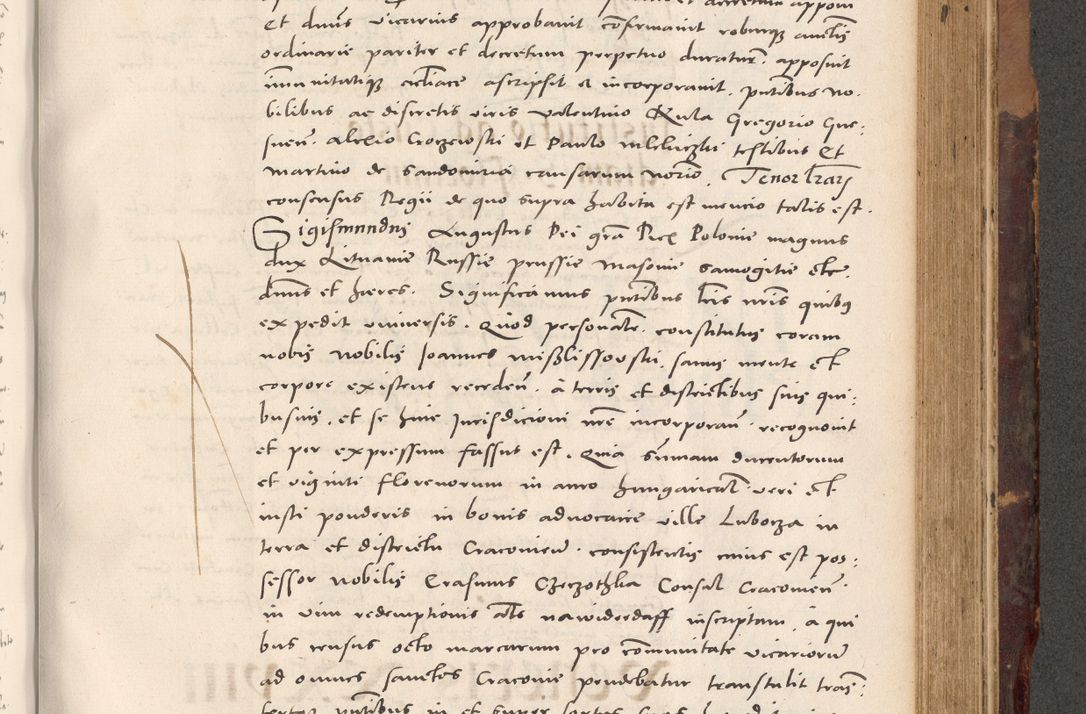 et dnus vicarius approbavit cõfirmavit roburq̃ autis
ordinarie pariter et decretum perpetuo duratur. apposuit
immunitatiq̃ ecliace ascripsit et incorporavit. pntibus no-
bilibus ac discretis viris Valentino Ruta Gregorio Gne-
Alexio et Paulo testibus Et
Martino de Sandomiria causarum notrio. Tenor lrarz
consensus Regii de quo supra habita est mencio talis est.
Sigismundus Augustus Dei gra Rex Polonie magnus
dux Lituanie Russie prussie Masovie Samogitie etc.
dnus et heres. Significamus pntibus lris nris quibus
expedit universis. Quod personalr constitutus coram
nobis nobilis Joannes Mislissowski sanus mente et
corpore existens receden. a terris et districtibus suis qui-
busvis. et se huic Jurisdicioni nre incorporan. recognovit
et per expressum fassus est. Quia summam ducentorum
et viginti florenorum in auro hungarical veri et
iusti ponderis in bonis advocatie ville Luborza in
terra et districtu Cracovien. consistentis cuius est pos-
sessor nobilis Erasmus Czeczothka Consul Cracovien.
in vim redemptionis als nawiderdaff inscriptam. a qui
bus census octo marcarum pro cõmunitate vicarioru
ad omnes sanctos Cracovie pendebatur transtulit tras-